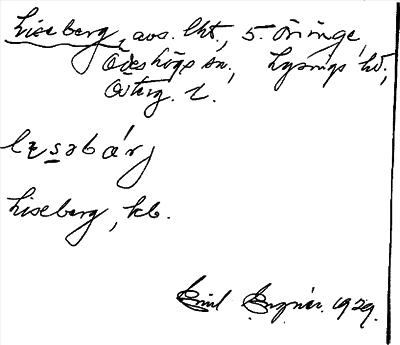 Liseberg, avs. lht, 5. Öringe
Ödeshögs sn., Lysings hd,
Österg. l.
Liseberg, kb.
Emil 1929.